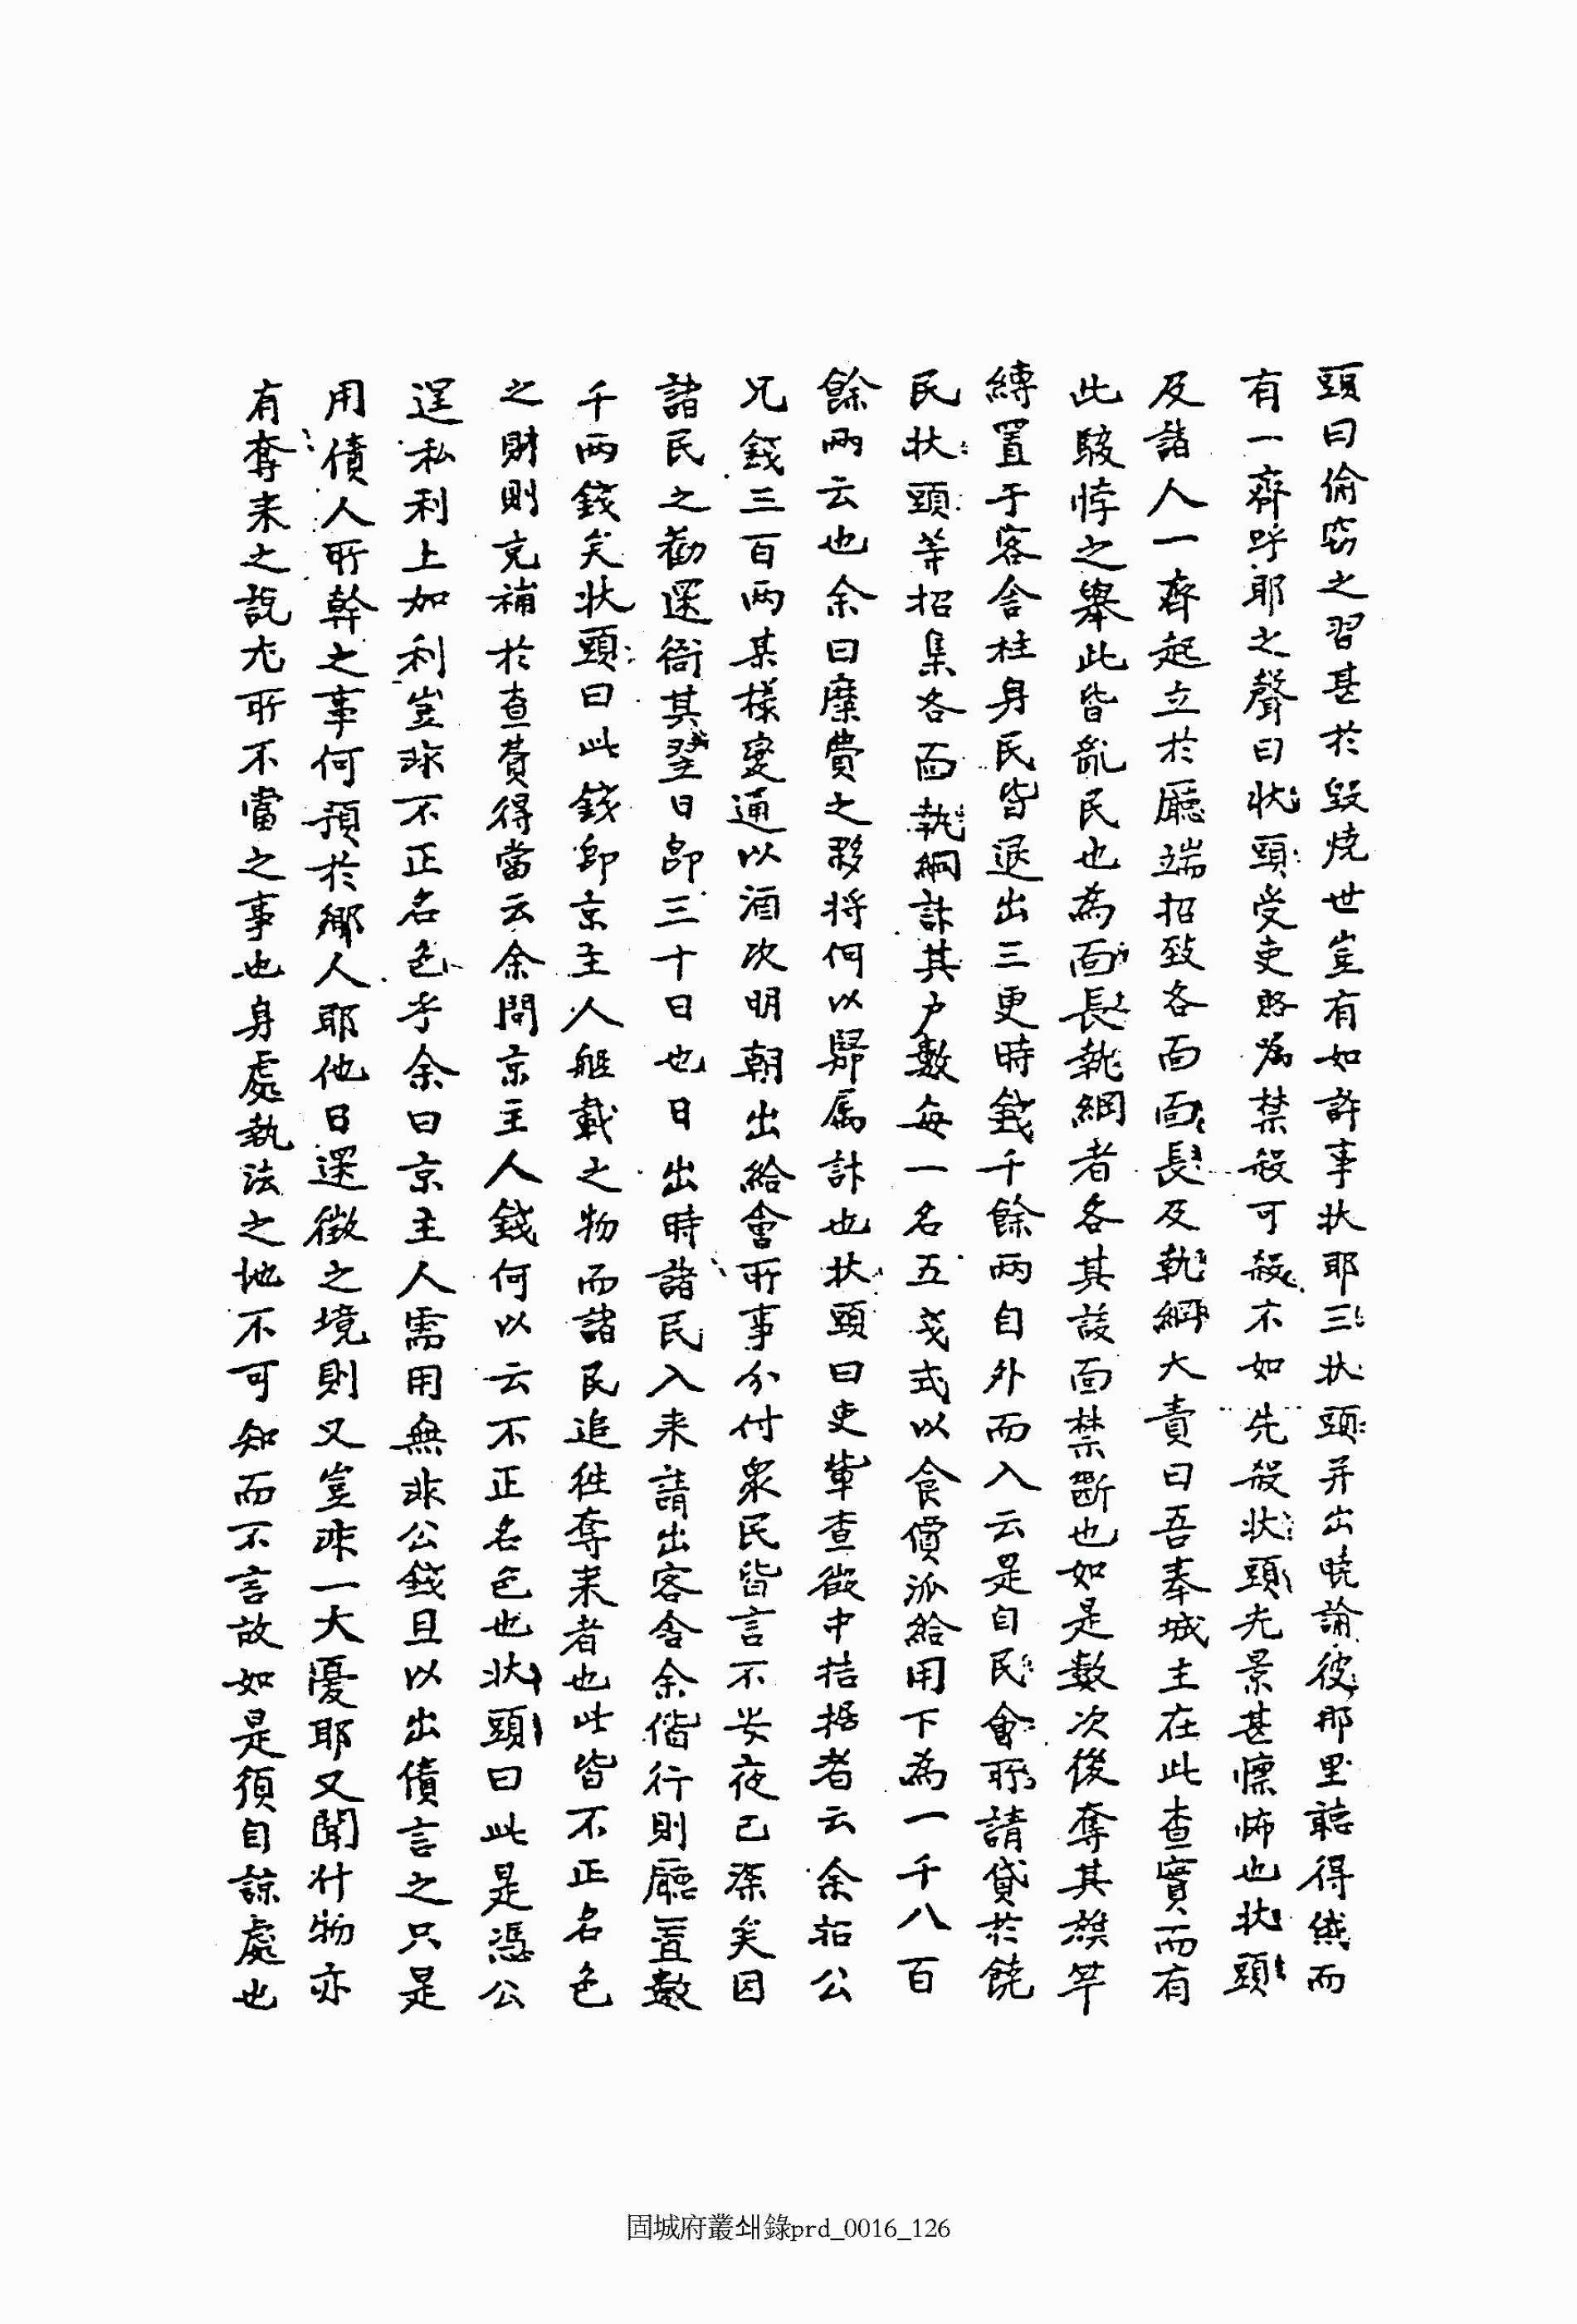 頭曰偷窃之習甚於毀燒世豈有如許事状耶三状頭并出曉諭彼那里聽得然而
有一齊呼耶之聲曰状頭受吏賂為禁殺可殺不如先殺状頭光景甚懍怖也状頭
及諸人一齊起立於廳端招致各面面長及執綱大責曰吾奉城主在此查實而有
此駭悖之擧此皆亂民也為面長執綱者各其該面禁斷也如是數次後奪其旗竿
縛置于客舍柱身民皆退出三更時錢千餘兩自外而入云是自民會所請貸於饒
民状頭等招集各面執綱計其戶數每一名五戔式以食價派給用下為一千八百
餘兩云也余曰糜費之夥将何以歸屬計也状頭曰吏輩查徵中拮据者云余招公
兄錢三百両某樣變通以酒次明朝出給會所事分付衆民皆言不安夜已深矣因
諸民之勸還衙其翌日卽三十日也日出時諸民入来請出客舍余偕行則廳置數
千両錢矣状頭曰此錢卽京主人船載之物而諸民追徃奪来者也此皆不正名色
之財則充補於查費得當云余問京主人錢何以云不正名色也状頭曰此是憑公
逞私利上加利豈非不正名色乎余曰京主人需用無非公錢且以出債言之只是
用債人所幹之事何預於鄉人耶他日還徵之境則又豈非一大憂耶又聞什物亦
有奪来之說尤所不當之事也身處執法之地不可知而不言故如是須自諒處也
固城府叢쇄錄prd_0016_126